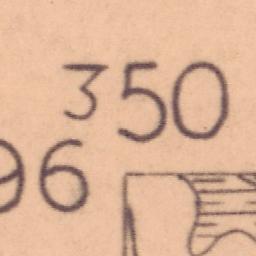 350
96